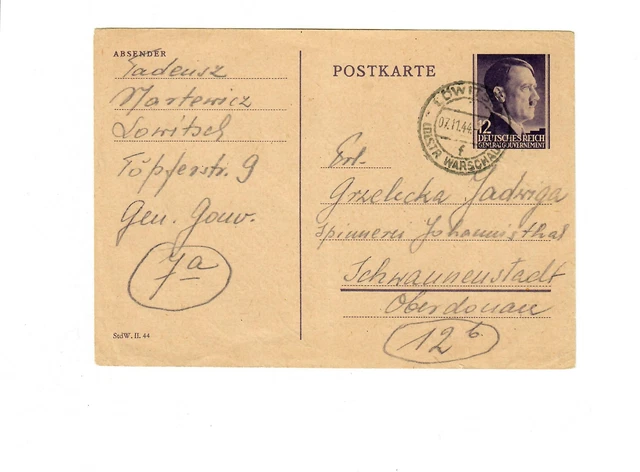 ABSENDER
Tadeusz
Martewicz
Lowitsch
Töpferstr. 9
Gen. Gouv.
7a
StdW. II. 44
POSTKARTE
LOWITSCH
07.11.44
f
(DISTR. WARSCHAU)
12
DEUTSCHES REICH
GENERALGOUVERNEMENT
Frl.
Grzelecka Jadwiga
Spinnerei Johannisthal
Schwannenstadt
Oberdonau
12b.